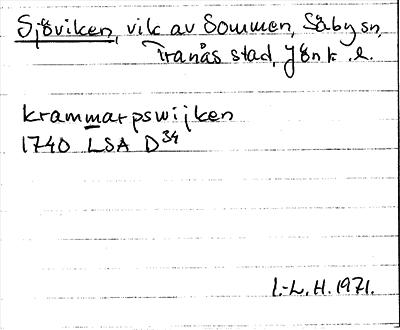 Sjöviken, vik av Sommen, Säby sn,
Tranås stad, Jönk. l.
krammarpswijken
1740 LSA D34
L-L. H. 1971.